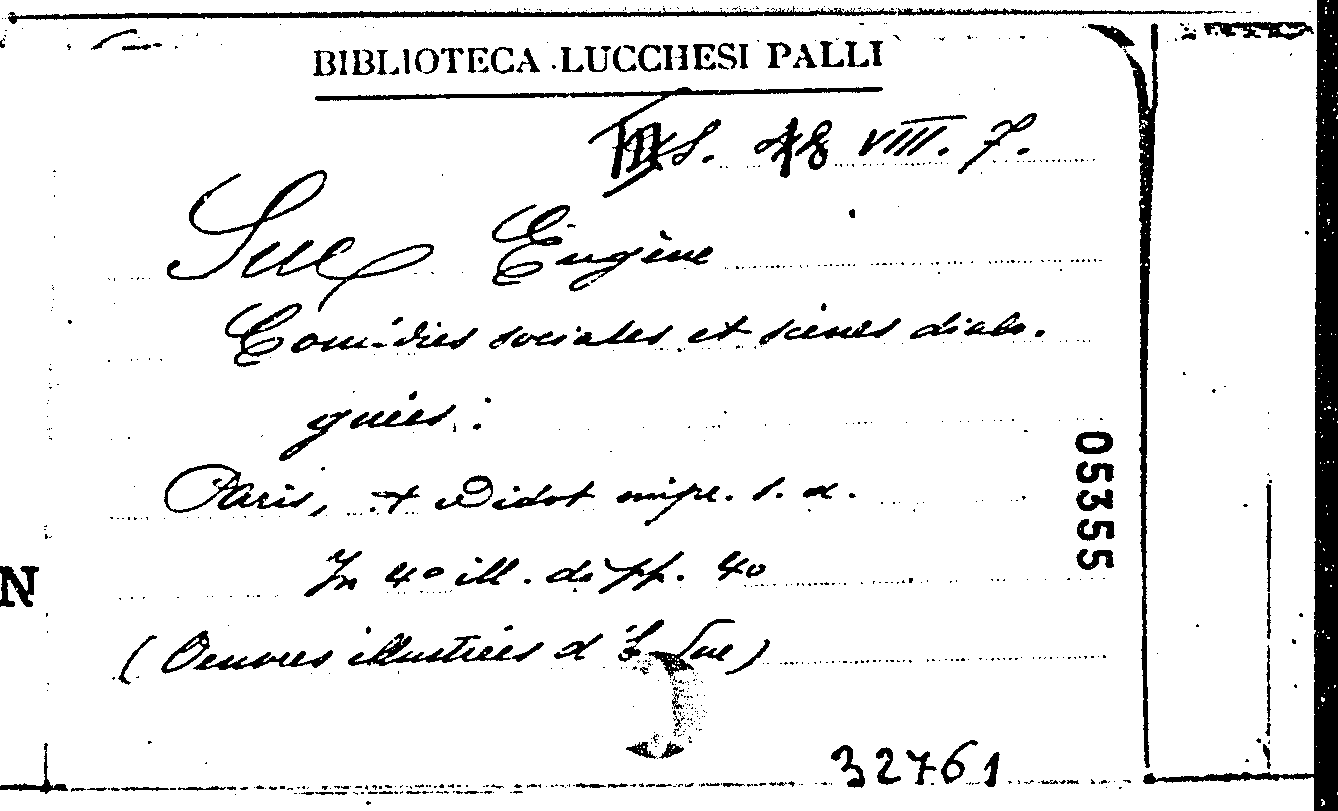 BIBLIOTECA LUCCHESI PALLI
S. 48 VIII. 7.
Sue Eugène
Comédies sociales et scènes dialo-
guées.
Paris, Didot impr. s. d.
In 4º ill. di pp. 40
(Oeuvres illustrées d'E. Sue)
05355
N
32761